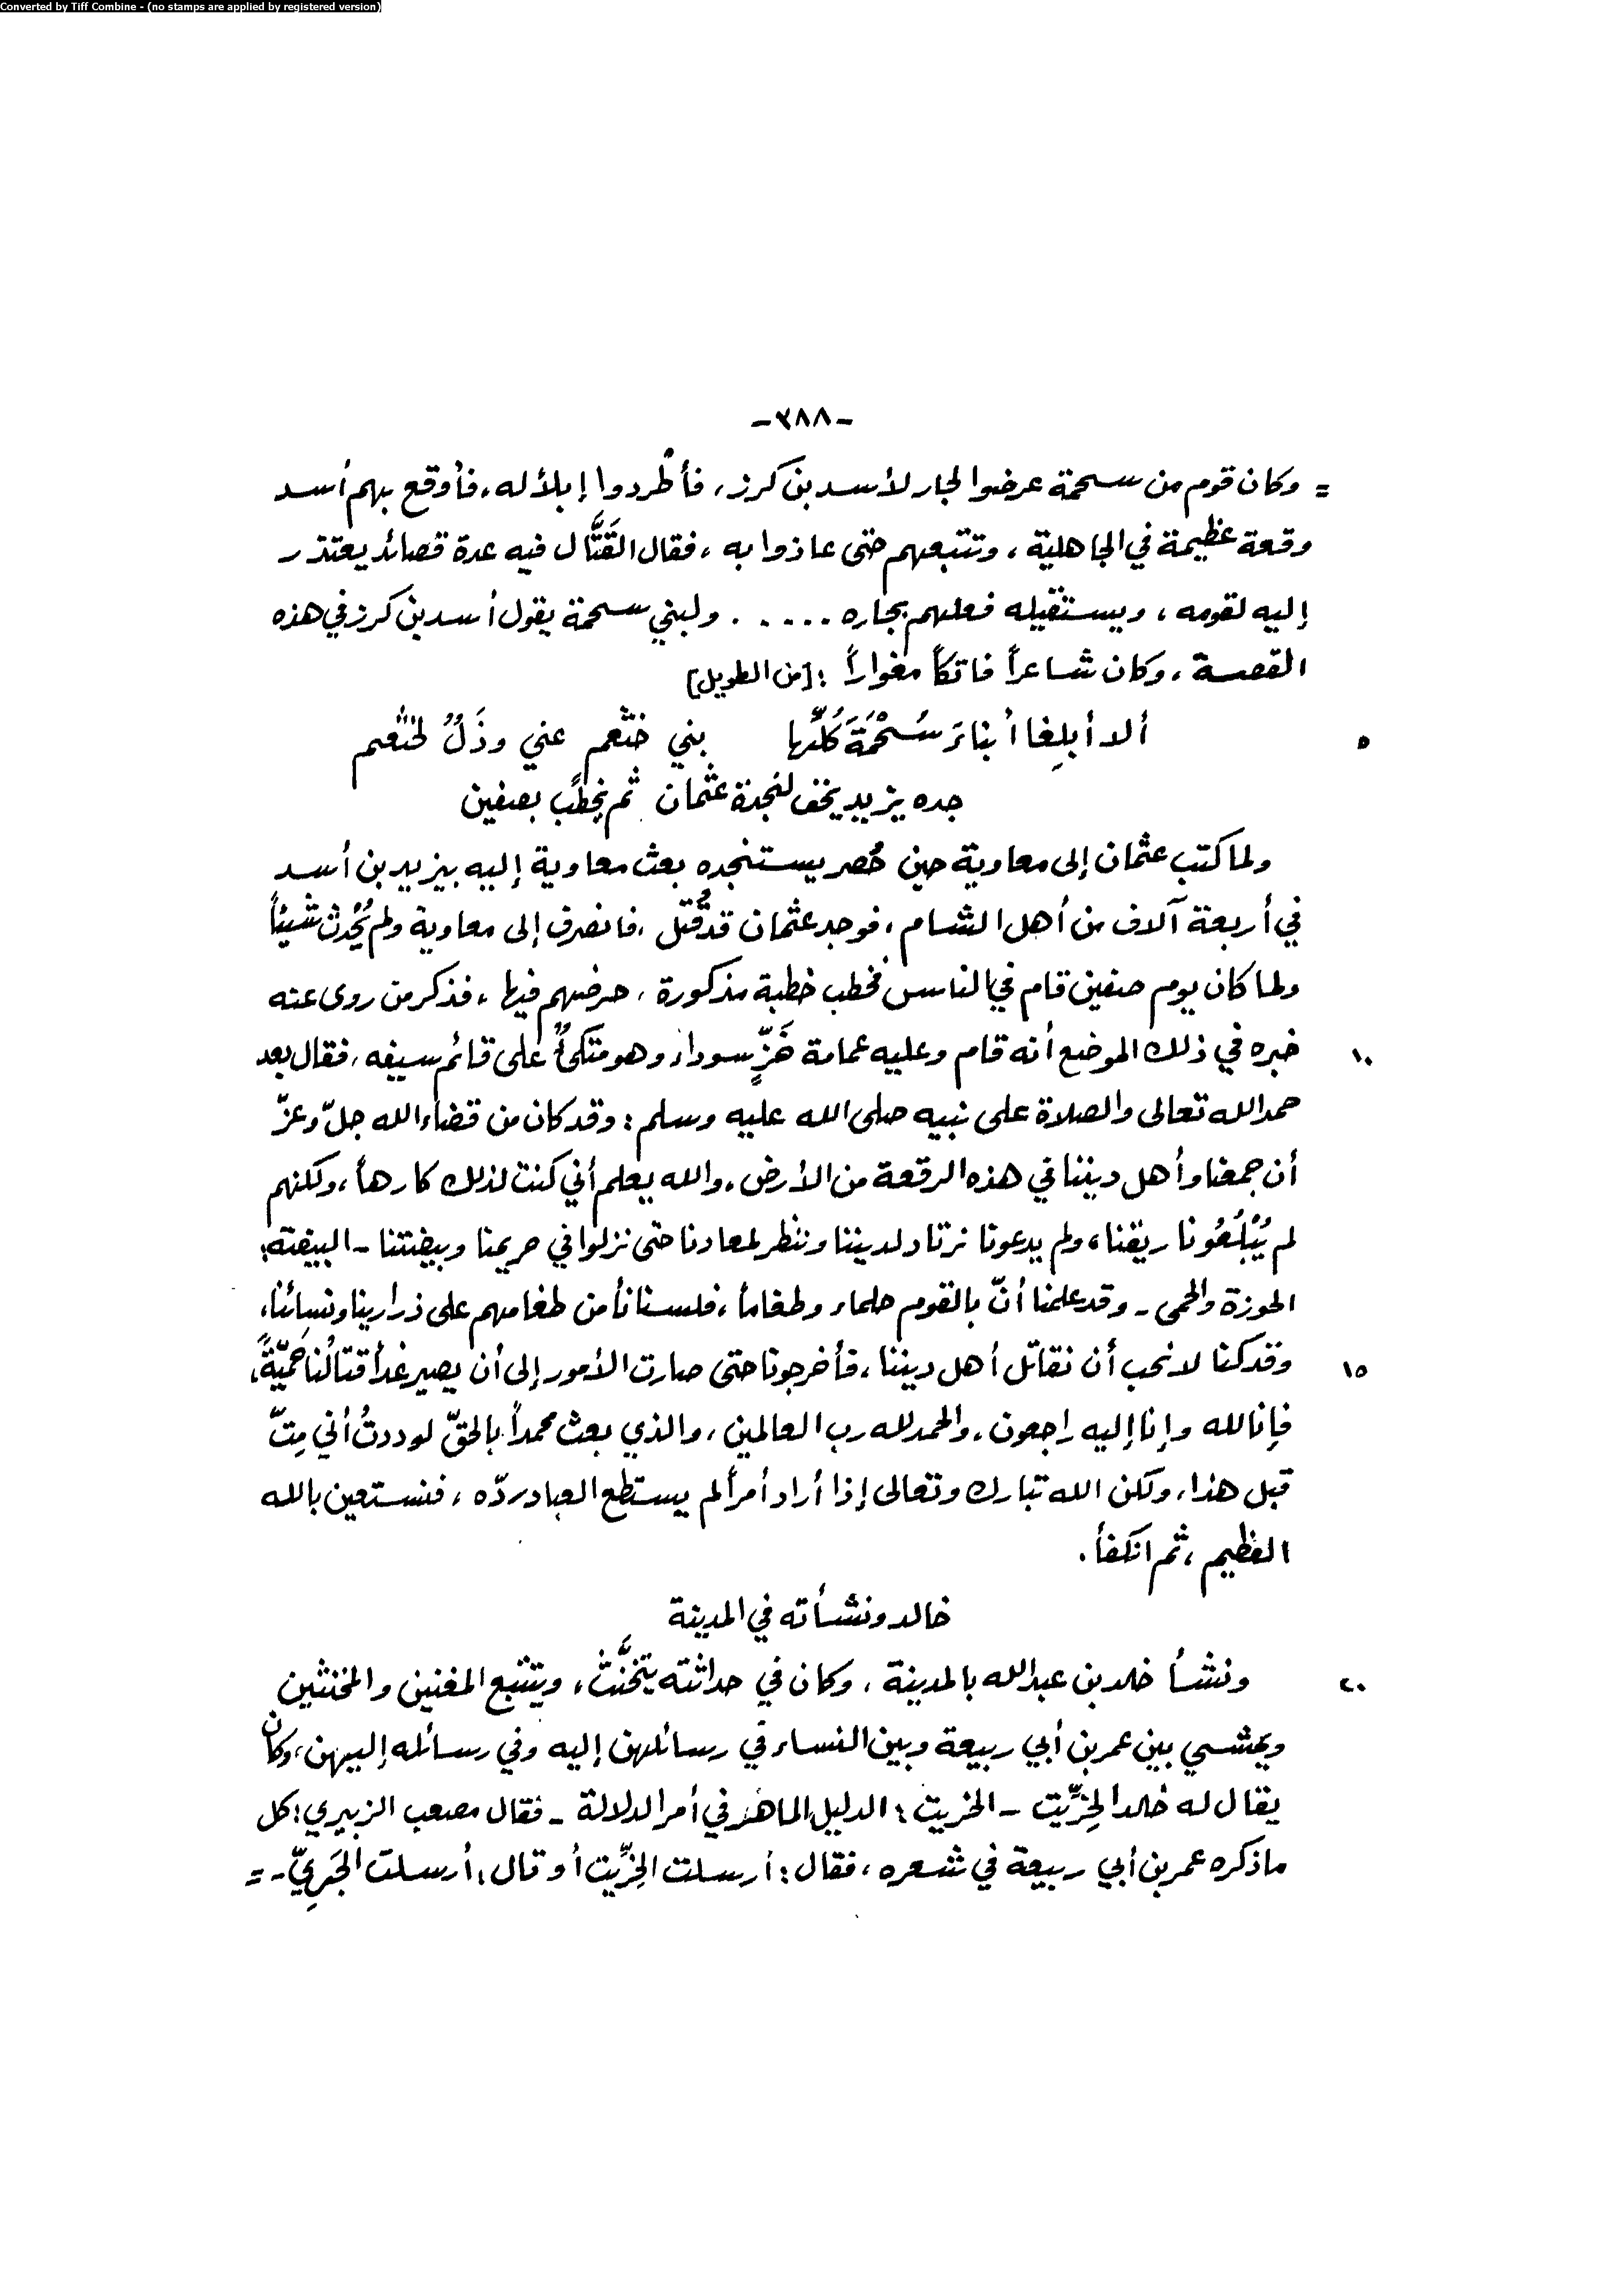 Converted by Tiff Combine - (no stamps are applied by registered version)
-٣٨٨-
= وكان قوم من سحمة عرضوا لجار لأسد بن كرز، فأطردوا إبلاً له، فأوقع بهم أسد
وقعة عظيمة في الجاهلية، وتتبعهم حتى عاذوا به، فقال القَتَّال فيه عدة قصائد يعتذر
إليه لقومه، ويستقيله فعلهم بجاره ..... ولبني سحمة يقول أسد بن كرز في هذه
القصة، وكان شاعراً فاتكاً مغواراً: [من الطويل]
ألا أبلِغا أبناءَ سُحْمَةَ كُلِّها بني خثعم عني وذَلٌّ لخثعم ٥
جده يزيد يخف لنجدة عثمان ثم يخطب بصفين
ولما كتب عثمان إلى معاوية حين حُصر يستنجده بعث معاوية إليه بيزيد بن أسد
في أربعة آلاف من أهل الشام، فوجد عثمان قد قُتل، فانصرف إلى معاوية ولم يُحْدث شيئاً
ولما كان يوم صفين قام في الناس فخطب خطبة مذكورة، حرضهم فيها، فذكر من روى عنه
خبره في ذلك الموضع أنه قام وعليه عمامة خَزٍّ سوداء وهو متكئٌ على قائم سيفه، فقال بعد ١٠
حمد الله تعالى والصلاة على نبيه صلى الله عليه وسلم: وقد كان من قضاء الله جلّ وعزّ
أن جمعنا وأهل ديننا في هذه الرقعة من الأرض، والله يعلم أني كنت لذلك كارهاً، ولكنهم
لم يُبْلِعُونا ريقنا، ولم يدعونا نرتاد لديننا وننظر لمعادنا حتى نزلوا في حريمنا وبيضتنا - البيضة:
الحوزة والحمى - وقد علمنا أنّ بالقوم حلماء وطغاماً، فلسنا نأمن طغامهم على ذرارينا ونسائنا،
وقد كنا لا نحب أن نقاتل أهل ديننا، فأخرجونا حتى صارت الأمور إلى أن يصير غداً قتالُنا حَمِيّةً، ١٥
فإنا لله وإنا إليه راجعون، والحمد لله رب العالمين، والذي بعث محمداً بالحقّ لوددتُ أني مِتّ
قبل هذا، ولكن الله تبارك وتعالى إذا أراد أمراً لم يستطع العباد ردّه، فنستعين بالله
العظيم، ثم انكفأ.
خالد ونشأته في المدينة
ونشأ خالد بن عبد الله بالمدينة، وكان في حداثته يتخَنَّثُ، ويتتبع المغنين والمخنثين ٢٠
ويمشي بين عمر بن أبي ربيعة وبين النساء في رسائلهن إليه وفي رسائله إليهن، وكان
يقال له خالد الخِرِّيت - الخريت: الدليل الماهر في أمر الدلالة - فقال مصعب الزبيري: كل
ما ذكره عمر بن أبي ربيعة في شعره، فقال: أرسلت الخِرِّيت أو قال: أرسلت الجَرِيّ - =